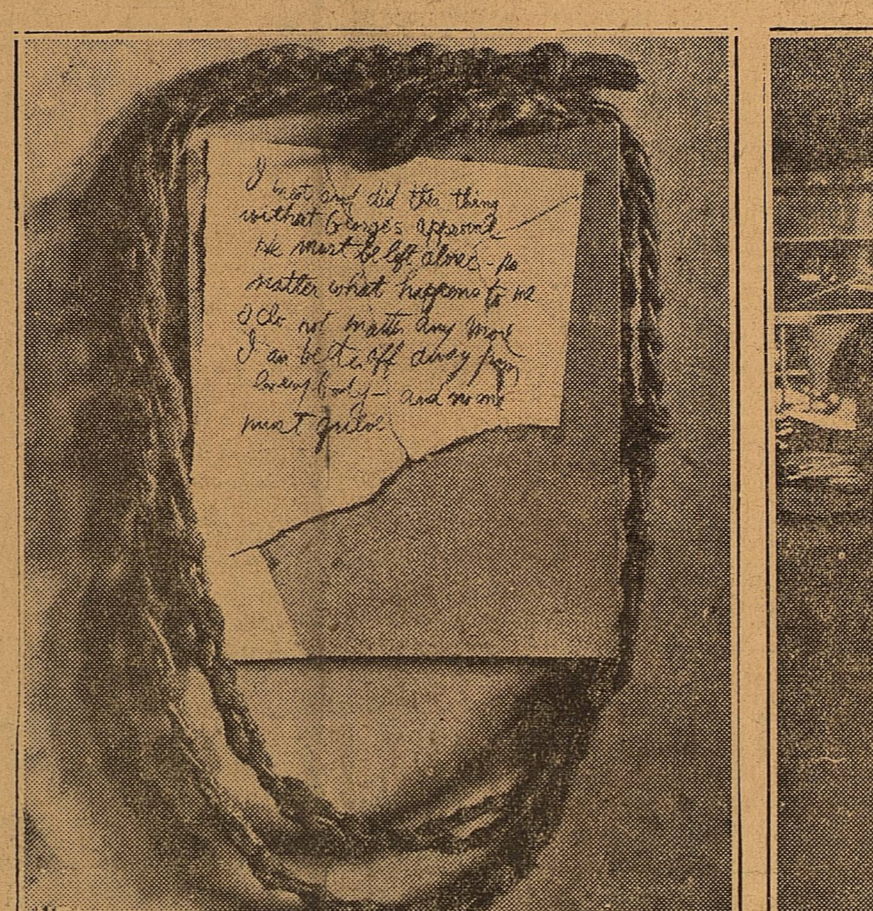 I went and did this thing
without George's approval
He must be left alone - no
matter what happens to me
I do not matter any more
I am better off away from
everybody - and no one
must grieve